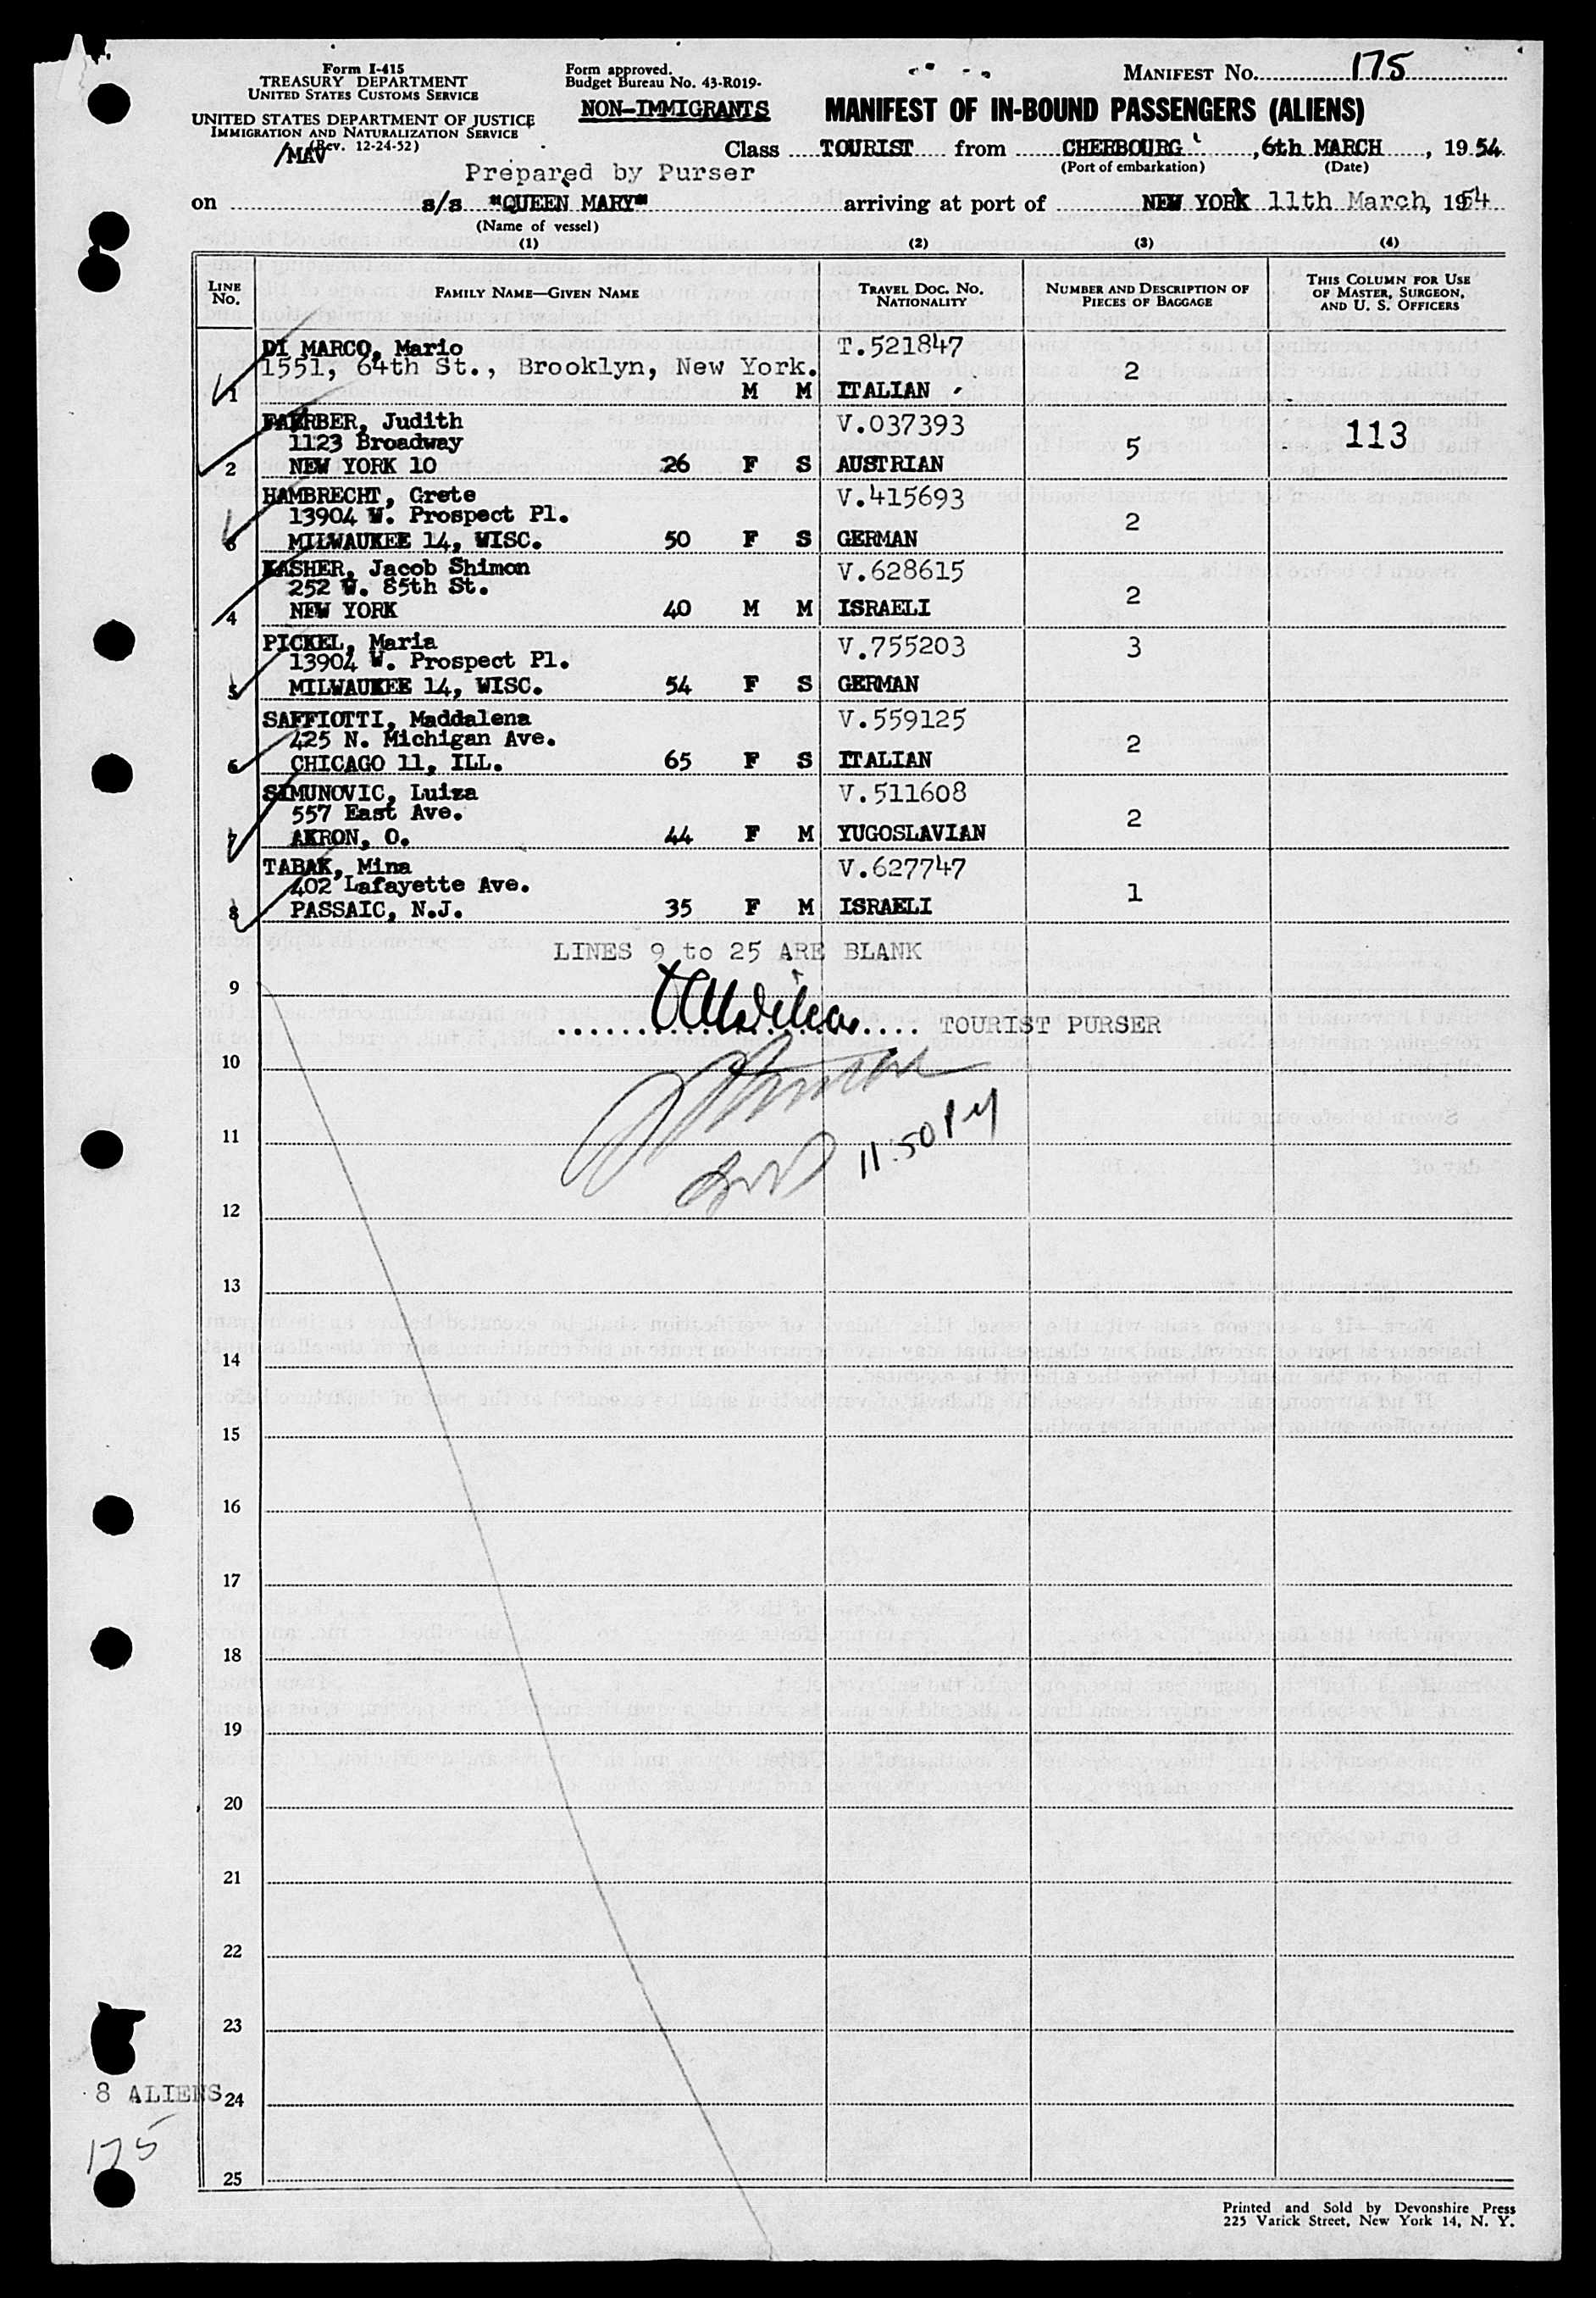 Form I-415
TREASURY DEPARTMENT
UNITED STATES CUSTOMS SERVICE
UNITED STATES DEPARTMENT OF JUSTICE
IMMIGRATION AND NATURALIZATION SERVICE
(Rev. 12-24-52)
/MAV
Form approved.
Budget Bureau No. 43-R019-
NON-IMMIGRANTS
MANIFEST NO. 175
MANIFEST OF IN-BOUND PASSENGERS (ALIENS)
Class TOURIST from CHERBOURG, 6th MARCH, 1954
(Port of embarkation) (Date)
Prepared by Purser
on s/s "QUEEN MARY" arriving at port of NEW YORK 11th March, 1954
(Name of vessel)
(1) (2) (3) (4)
LINE NO. FAMILY NAME—GIVEN NAME TRAVEL DOC. NO. NATIONALITY NUMBER AND DESCRIPTION OF PIECES OF BAGGAGE THIS COLUMN FOR USE OF MASTER, SURGEON, AND U. S. OFFICERS
DI MARCO, Mario T.521847
1551, 64th St., Brooklyn, New York. 2
1 M M ITALIAN
FAERBER, Judith V.037393
1123 Broadway 5 113
2 NEW YORK 10 26 F S AUSTRIAN
HAMBRECHT, Grete V.415693
13904 W. Prospect Pl. 2
3 MILWAUKEE 14, WISC. 50 F S GERMAN
KASHER, Jacob Shimon V.628615
252 W. 85th St. 2
4 NEW YORK 40 M M ISRAELI
PICKEL, Maria V.755203 3
13904 W. Prospect Pl.
5 MILWAUKEE 14, WISC. 54 F S GERMAN
SAFFIOTTI, Maddalena V.559125
425 N. Michigan Ave. 2
6 CHICAGO 11, ILL. 65 F S ITALIAN
SIMUNOVIC, Luiza V.511608
557 East Ave. 2
7 AKRON, O. 44 F M YUGOSLAVIAN
TABAK, Mina V.627747
402 Lafayette Ave. 1
8 PASSAIC, N.J. 35 F M ISRAELI
LINES 9 to 25 ARE BLANK
9
TOURIST PURSER
10
11:50 PM
11
12
13
14
15
16
17
18
19
20
21
22
23
8 ALIENS
24
175
25
Printed and Sold by Devonshire Press
225 Varick Street, New York 14, N. Y.